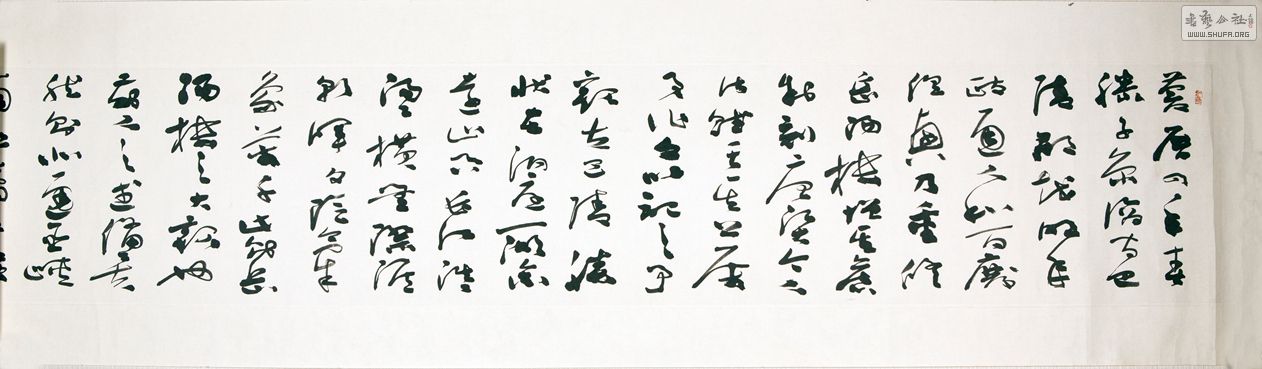 慶曆四年春
滕子京謫守巴
陵郡越明年
政通人和百廢
俱興乃重修
岳陽樓增其舊
制刻唐賢今人
詩賦于其上屬
予作文以記之予
觀夫巴陵勝
狀在洞庭一湖銜
遠山吞長江浩
湯橫無際涯
朝暉夕陰氣
象萬千此則岳
陽樓之大觀也
前人之述備矣
然則北通巫峽
書藝公社
WWW.SHUFA.ORG